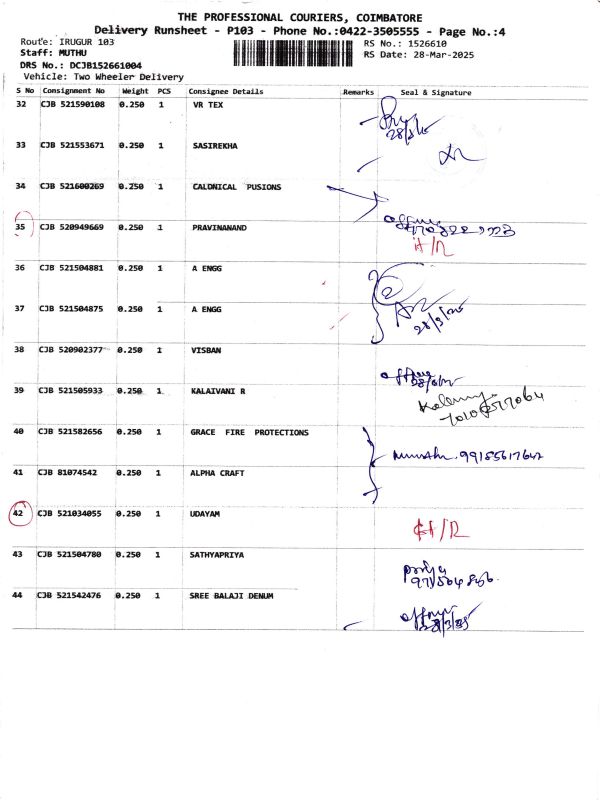 THE PROFESSIONAL COURIERS, COIMBATORE
Delivery Runsheet - P103 - Phone No.:0422-3505555 - Page No.:4
Route: IRUGUR 103
RS No.: 1526610
Staff: MUTHU
RS Date: 28-Mar-2025
DRS No.: DCJB152661004
Vehicle: Two Wheeler Delivery
S No Consignment No Weight PCS Consignee Details Remarks Seal & Signature
32 CJB 521590108 0.250 1 VR TEX
33 CJB 521553671 0.250 1 SASIREKHA
34 CJB 521600269 0.250 1 CALONICAL PUSIONS
35 CJB 520949669 0.250 1 PRAVINANAND
36 CJB 521504881 0.250 1 A ENGG
37 CJB 521504875 0.250 1 A ENGG
38 CJB 520902377 0.250 1 VISBAN
39 CJB 521505933 0.250 1 KALAIVANI R
40 CJB 521582656 0.250 1 GRACE FIRE PROTECTIONS
41 CJB 81074542 0.250 1 ALPHA CRAFT
42 CJB 521034055 0.250 1 UDAYAM
43 CJB 521504780 0.250 1 SATHYAPRIYA
44 CJB 521542476 0.250 1 SREE BALAJI DENUM